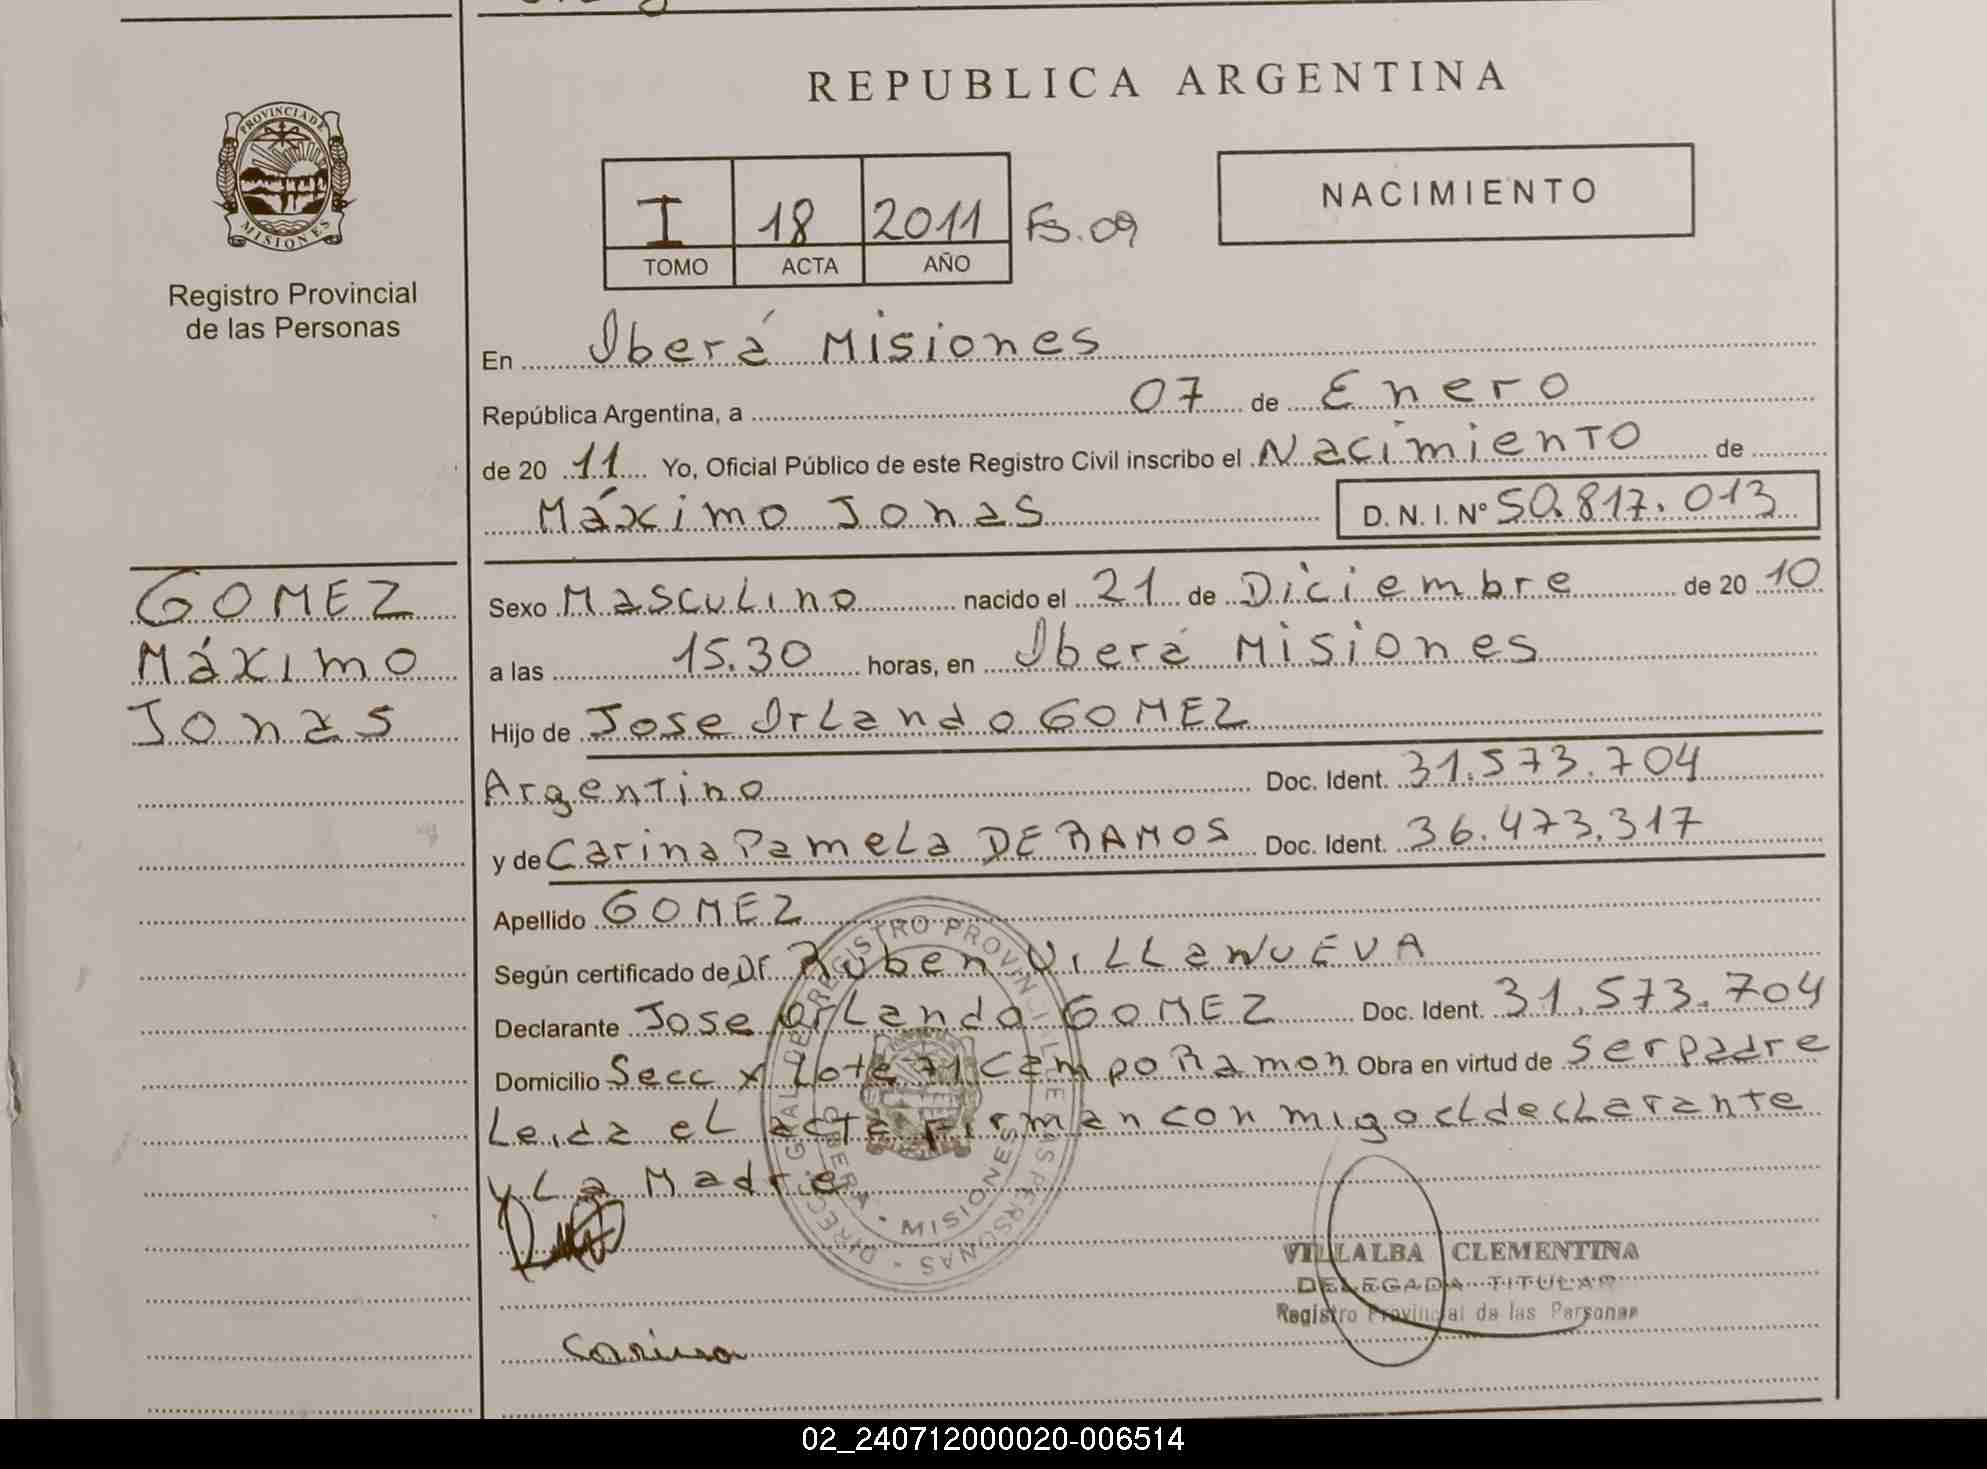 REPUBLICA ARGENTINA
PROVINCIA DE MISIONES
Registro Provincial
de las Personas
I 18 2011 Fs. 09
TOMO ACTA AÑO
NACIMIENTO
En Iberá Misiones
República Argentina, a 07 de Enero
de 20 11 Yo, Oficial Público de este Registro Civil inscribo el Nacimiento de
Máximo Jonas D.N.I. Nº 50.817.013
GOMEZ
Máximo
Jonas
Sexo Masculino nacido el 21 de Diciembre de 20 10
a las 15.30 horas, en Iberá Misiones
Hijo de Jose Orlando GOMEZ
Argentino Doc. Ident. 31.573.704
y de Carina Pamela DE RAMOS Doc. Ident. 36.473.317
Apellido GOMEZ
Según certificado de Dr. Ruben VILLANUEVA
Declarante Jose Orlando GOMEZ Doc. Ident. 31.573.704
Domicilio Secc x Lote 71 Campo Ramon Obra en virtud de ser padre
Leida el acta firman conmigo el declarante
y La Madre
DIRECC. GRAL DE REGISTRO PROVINCIAL DE LAS PERSONAS
IBERA - MISIONES
VILLALBA CLEMENTINA
DELEGADA TITULAR
Registro Provincial de las Personas
Carina
02_240712000020-006514